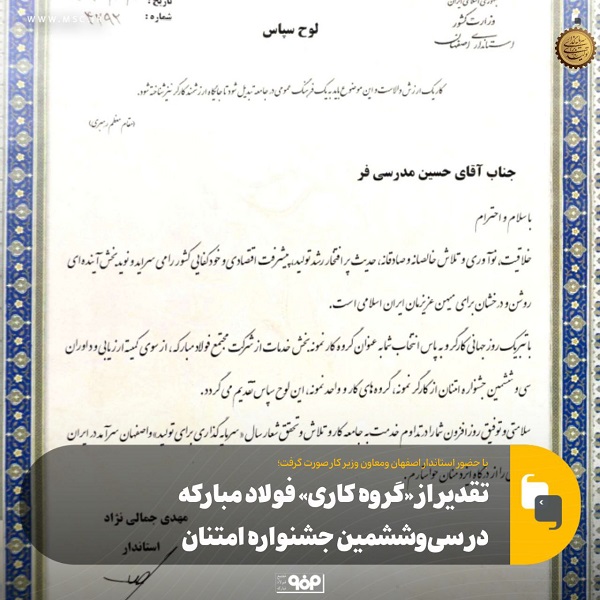 WWW.MSC
تاریخ :
شماره :
۴۲۹۲
وزارت کشور
استانداری اصفهان
لوح سپاس
کار یک ارزش والاست و این موضوع باید به یک فرهنگ عمومی در جامعه تبدیل شود تا جایگاه ارزشمند کارگر نیز شناخته شود.
(مقام معظم رهبری)
جناب آقای حسین مدرسی فر
با سلام و احترام
خلاقیت، نوآوری و تلاش خالصانه و صادقانه، حدیث پر افتخار رشد تولید، پیشرفت اقتصادی و خودکفایی کشور را می سراید و نوید بخش آینده ای
روشن و درخشان برای میهن عزیزمان ایران اسلامی است.
با تبریک روز جهانی کارگر و به پاس انتخاب شما به عنوان گروه کار نمونه بخش خدمات از شرکت مجتمع فولاد مبارکه، از سوی کمیته ارزیابی و داوران
سی و ششمین جشنواره امتنان از کارگر نمونه، گروه های کار و واحد نمونه، این لوح سپاس تقدیم می گردد.
سلامتی و توفیق روز افزون شما در تداوم خدمت به جامعه کار و تلاش و تحقق شعار سال «سرمایه گذاری برای تولید» و اصفهان سرآمد در ایران
را از درگاه ایزد منان خواستارم.
با حضور استاندار اصفهان و معاون وزیر کار صورت گرفت؛
تقدیر از «گروه کاری» فولاد مبارکه
در سی‌وششمین جشنواره امتنان
مهدی جمالی نژاد
استاندار